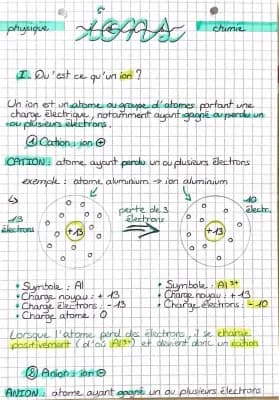 physique ions chimie
I. Qu'est ce qu'un ion ?
Un ion est un atome ou groupe d'atomes portant une
charge électrique, notamment ayant gagné ou perdu un
ou plusieurs électrons.
① Cation : ion ⊕
CATION : atome ayant perdu un ou plusieurs électrons
exemple : atome aluminium → ion aluminium
13
électrons
+13
perte de 3
électrons
+13
10
électr.
• Symbole : Al
• Charge noyau : + 13
• Charge électrons : - 13
• Charge atome : 0
• Symbole : Al³⁺
• Charge noyau : + 13
• Charge électrons : - 10
Lorsque l'atome perd des électrons, il se charge
positivement (d'où Al³⁺) et devient donc un cation
② Anion : ion ⊖
ANION : atome ayant gagné un ou plusieurs électrons